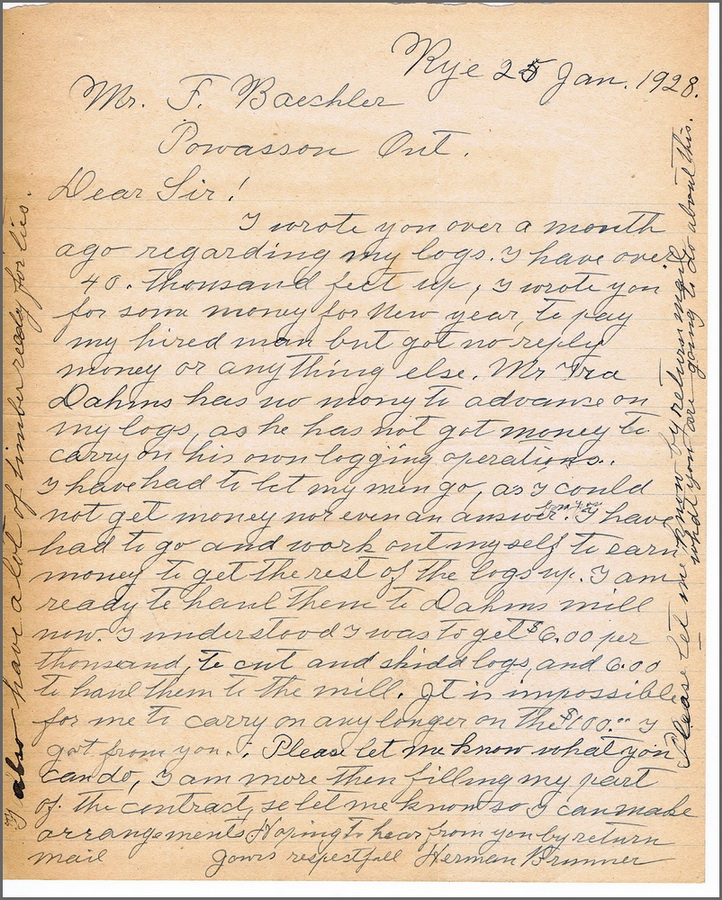 Rye 25 Jan. 1928.
Mr. F. Baechler
Powasson Ont.
Dear Sir!
I wrote you over a month
ago regarding my logs. I have over
40. thousand feet up, I wrote you
for some money for New year, to pay
my hired man but got no reply
money or anything else. Mr Ira
Dahms has no mony to advance on
my logs, as he has not got money to
carry on his own logging operations.
I have had to let my men go, as I could
not get money not even an answer. from you I have
had to go and work out myself to earn
money to get the rest of the logs up. I am
ready to haul them to Dahms mill
now. I understood I was to get $6.00 per
thousand, to cut and skidd logs, and 6.00
to haul them to the mill. It is impossible
for me to carry on any longer on the $100.00 I
got from you. Please let me know what you
can do, I am more then filling my part
of the contract, so let me know so I can make
arrangements Hoping to hear from you by return
mail Yours respectfull Herman Brunner
I also have a lot of timber ready for ties.
Please let me know by return mail
what you are going to do about this.